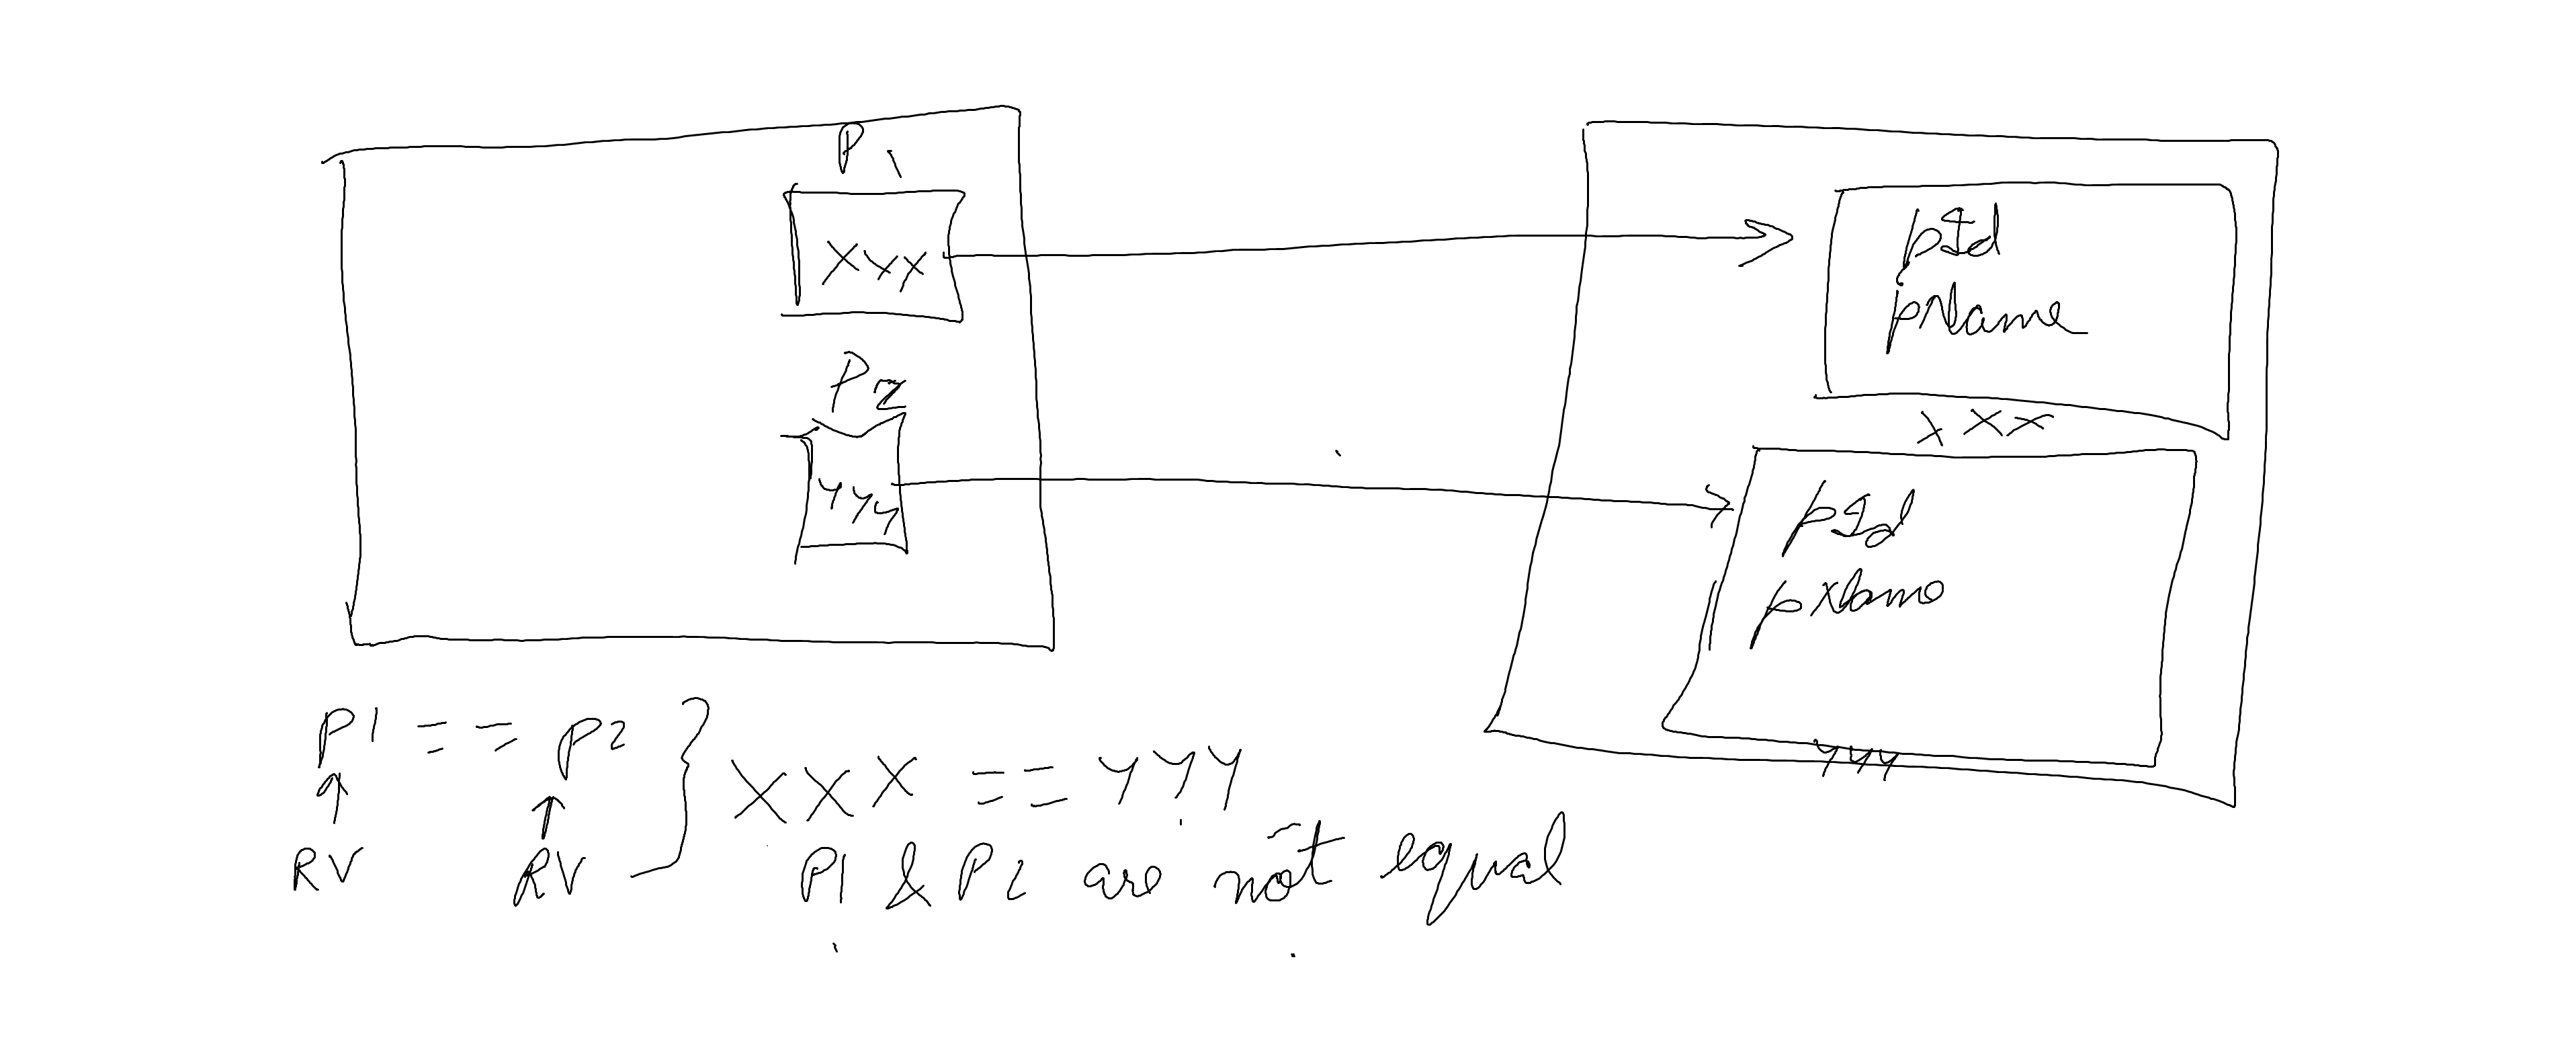 P1
XYX
pId
pName
XXX
P2
YYY
pId
pName
YYY
P1 == P2
RV RV
XXX == YYY
P1 & P2 are not equal